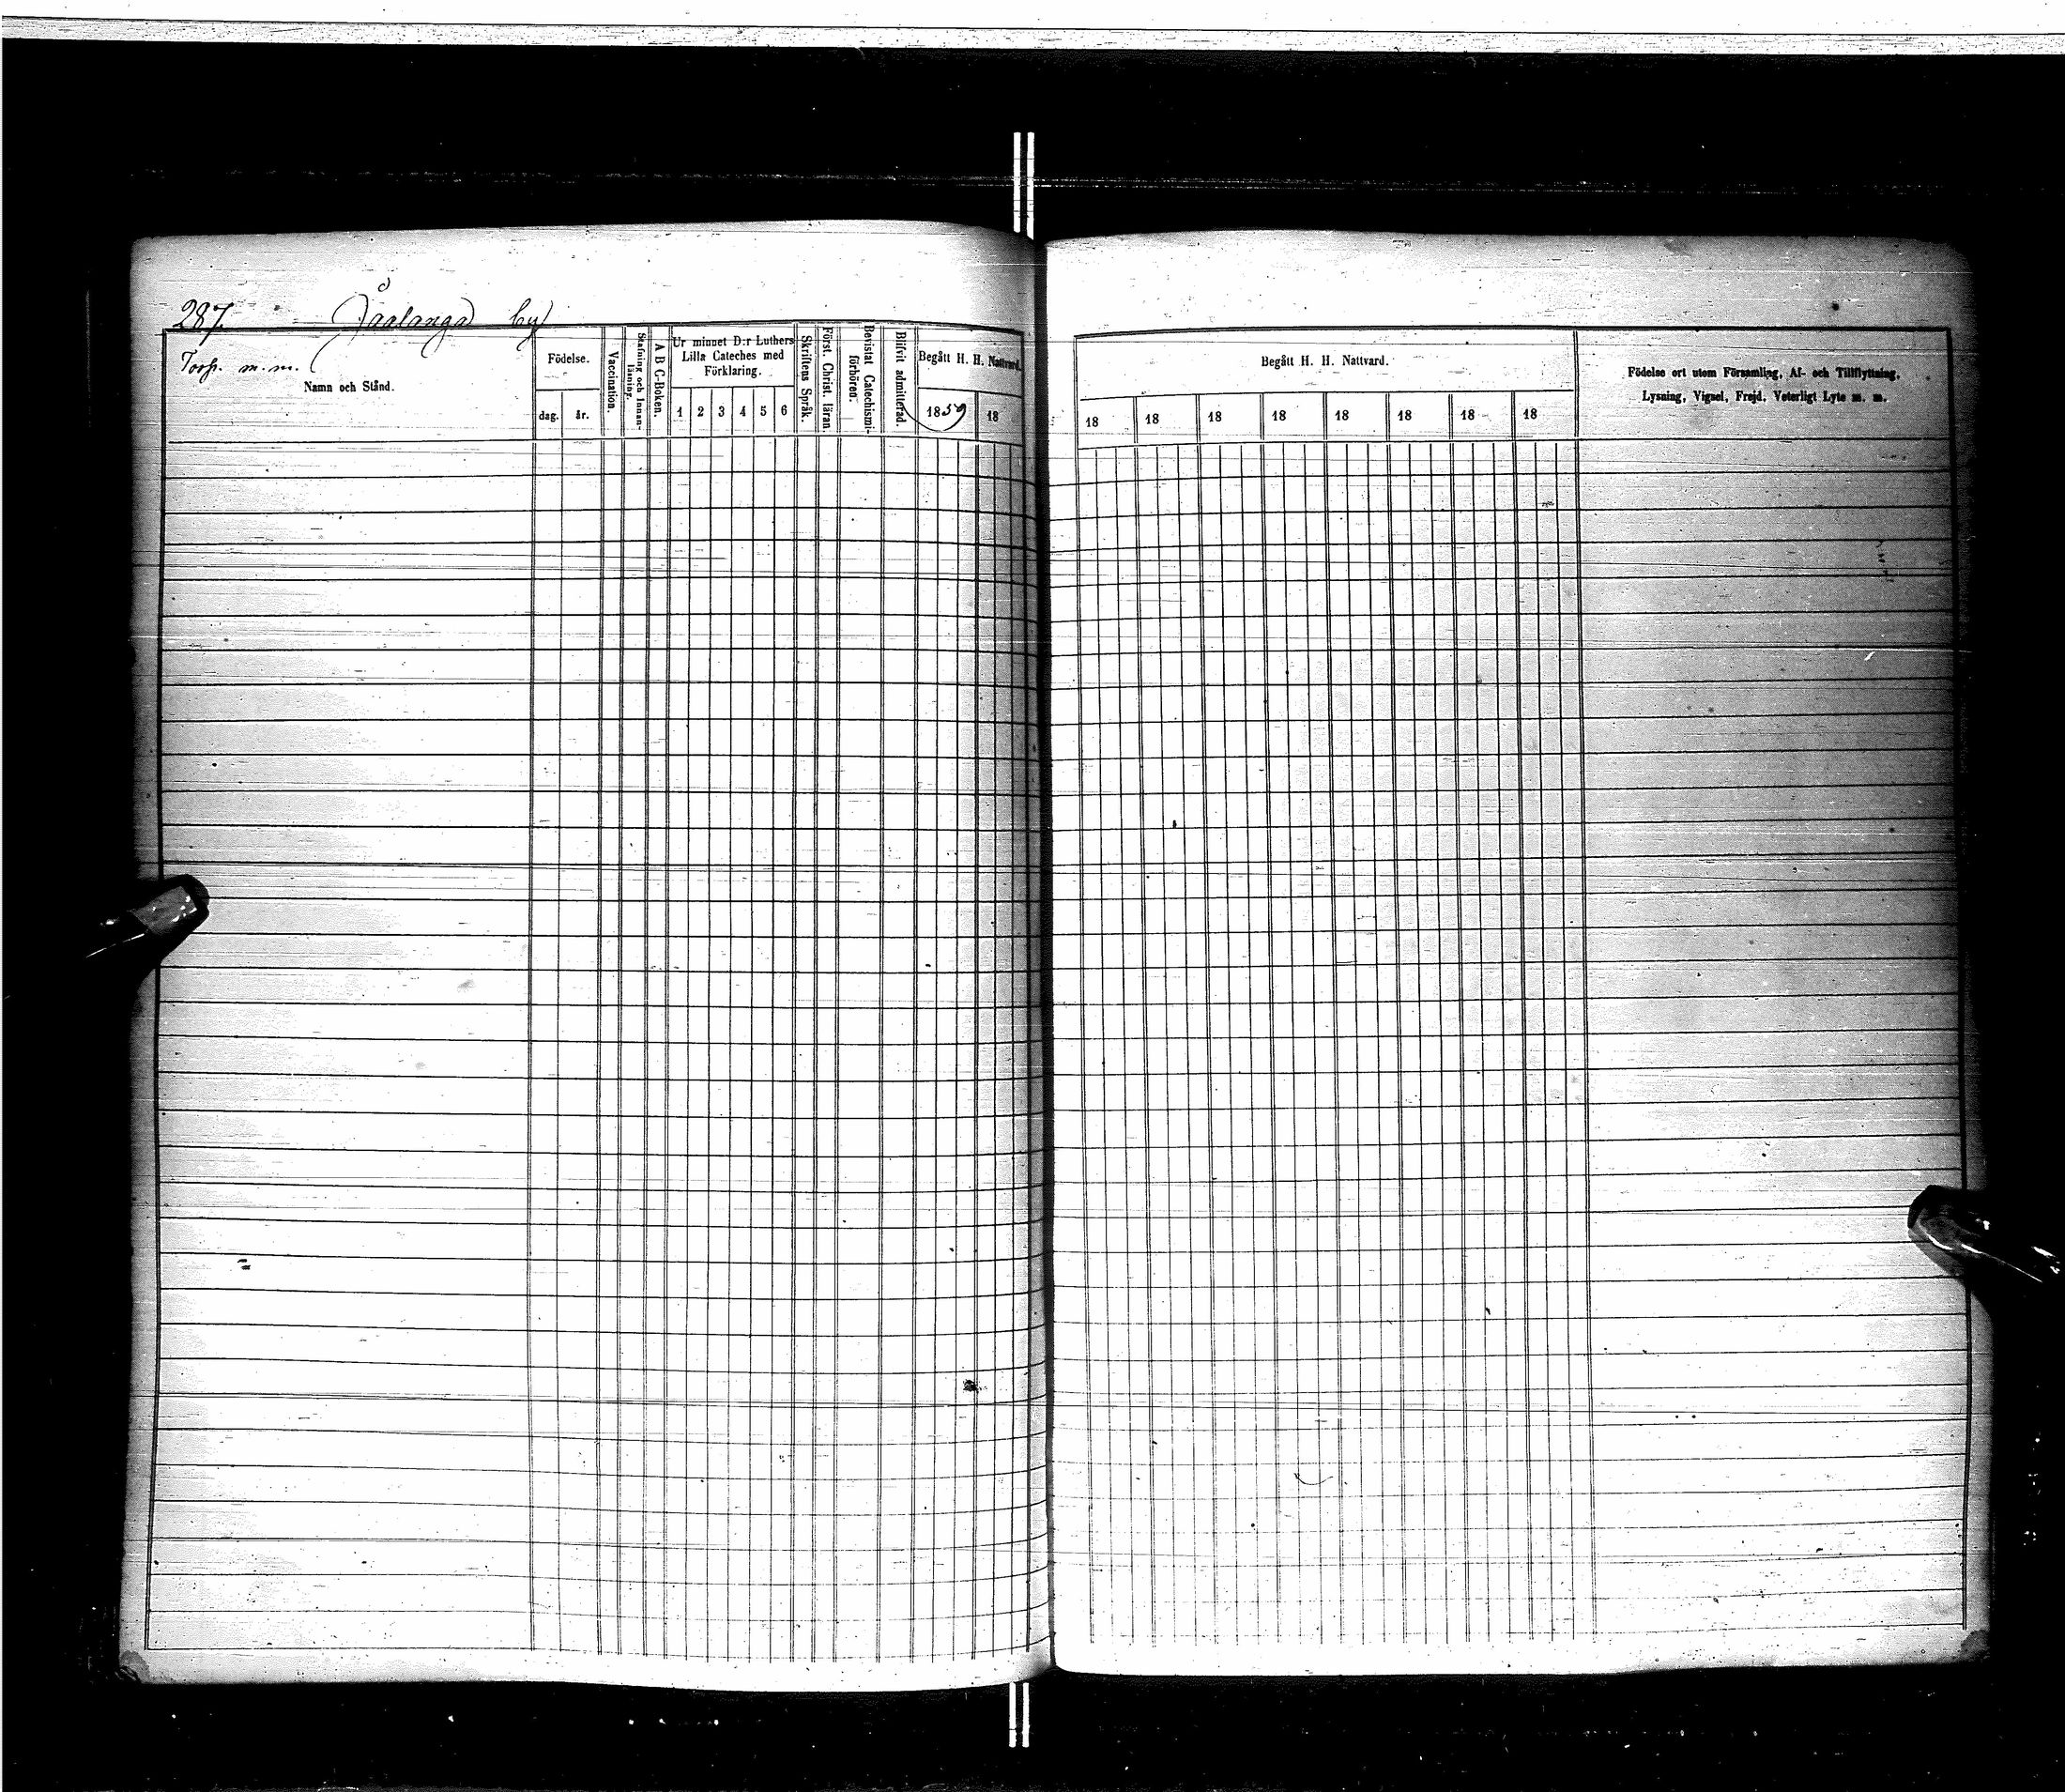 287. Jåalanga by
Torp. m. m.
Namn och Stånd.
Födelse.
dag. år.
Vaccination.
Stafning och Innan-
läsning.
A B C-Boken.
Ur minnet D:r Luthers
Lilla Cateches med
Förklaring.
1 2 3 4 5 6
Skriftens Språk.
Först. Christ. läran.
Bevistat Catechismi-
förhören.
Blifvit admitterad.
Begått H. H. Nattvard.
1859 18
Begått H. H. Nattvard.
18 18 18 18 18 18 18 18
Födelse ort utom Församling, Af- och Tillflyttning,
Lysning, Vigsel, Frejd, Veterligt Lyte m. m.